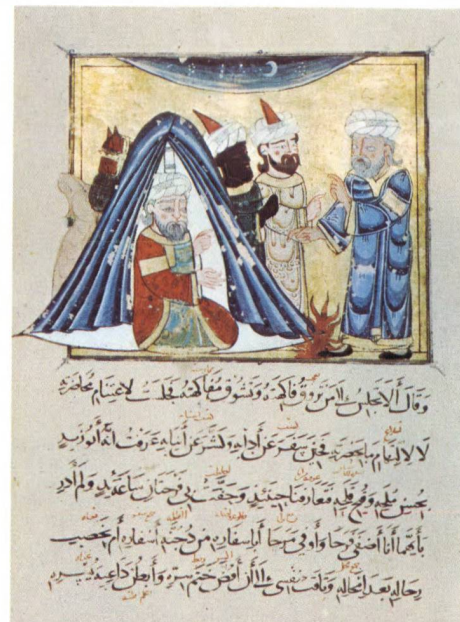 وقال ألا اجلس إلى من تروق فاكهته وتشوق مفاكهته فجلست لاغتنام محاضرته
لا لالتهام ما بحضرته فحين سفر عن آدابه وكشر عن أنيابه عرفت أنه أبو زيد
بحسن ملحه وقبح قلحه فتعارفنا حينئذ وحفت بي فرحتان ساعتئذ ولم أدر
بأيهما أنا أصفى فرحا وأوفى مرحا أبإسفاره من دجنة أسفاره أم بخصب
رحاله بعد امحاله وتاقت نفسي إلى أن أفض ختم سره وأبطن داعية يسره